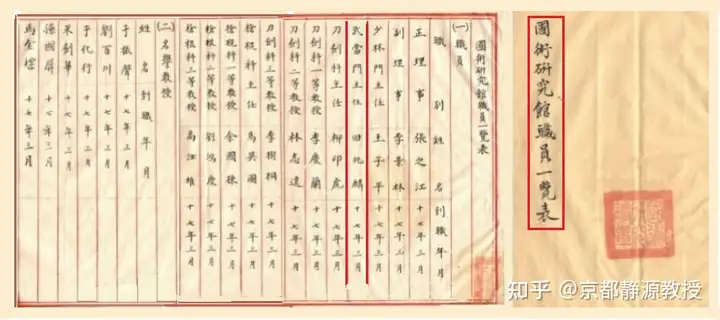 國術研究館職員一覽表
國術研究館職員一覽表
(一)職員
職別 姓名 到職年月
正理事 張之江 十七年三月
副理事 李景林 十七年三月
少林門主任 王子平 十七年三月
武當門主任 田兆麟 十七年三月
刀劍科主任 柳印虎 十七年三月
刀劍科一等教授 李慶蘭 十七年三月
刀劍科二等教授 林志遠 十七年三月
刀劍科三等教授 李樹桐 十七年三月
槍棍科主任 馬英圖 十七年三月
槍棍科一等教授 余國棟 十七年三月
槍棍科二等教授 劉鴻慶 十七年三月
槍棍科三等教授 高汝 十七年三月
(二)名譽教授
姓名 到職年月
于振聲 十七年三月
劉百川 十七年三月
于化行 十七年三月
米劍華 十七年三月
國屏 十七年三月
馬金鏢 十七年三月
知乎 @京都静源教授